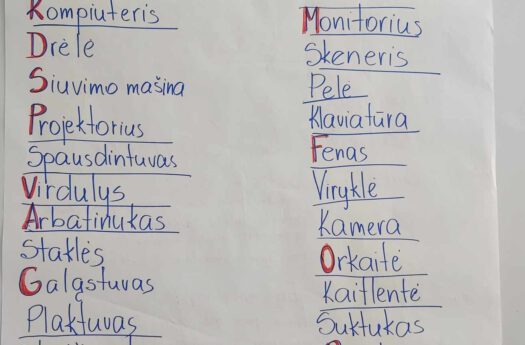 Kompiuteris
Drėlė
Siuvimo mašina
Projektorius
Spausdintuvas
Virdulys
Arbatinukas
Staklės
Galąstuvas
Plaktuvas
Monitorius
Skeneris
Pelė
Klaviatūra
Fenas
Viryklė
Kamera
Orkaitė
Kaitlentė
Suktukas